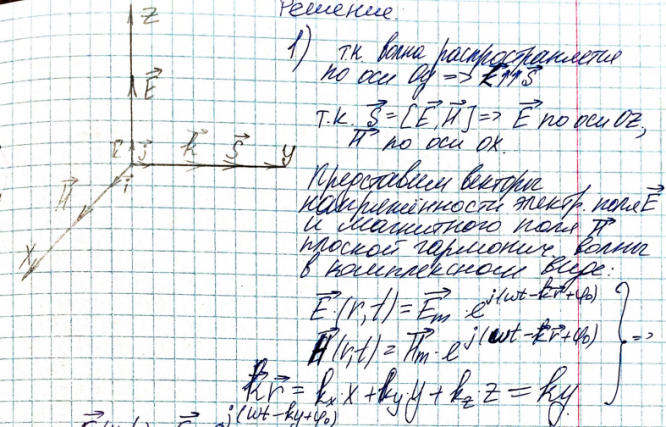 Решение.
Z
1) т.к. волна распространяется
по оси Oy => k⃗↑↑S⃗
E⃗
т.к. S⃗=[E⃗,H⃗] => E⃗ по оси OZ,
H⃗ по оси OX.
j⃗ k⃗ S⃗ y
i⃗
H⃗
X
Представим векторы
напряжённости электр. поля E⃗
и магнитного поля H⃗
плоской гармонич. волны
в комплексном виде:
E⃗(r,t)=E⃗m·e^j(ωt-k⃗r⃗+φ₀)
H⃗(r,t)=H⃗m·e^j(ωt-k⃗r⃗+φ₀) } =>
k⃗r⃗ = kx·x+ky·y+kz z = ky.
j(ωt-ky+φ₀)